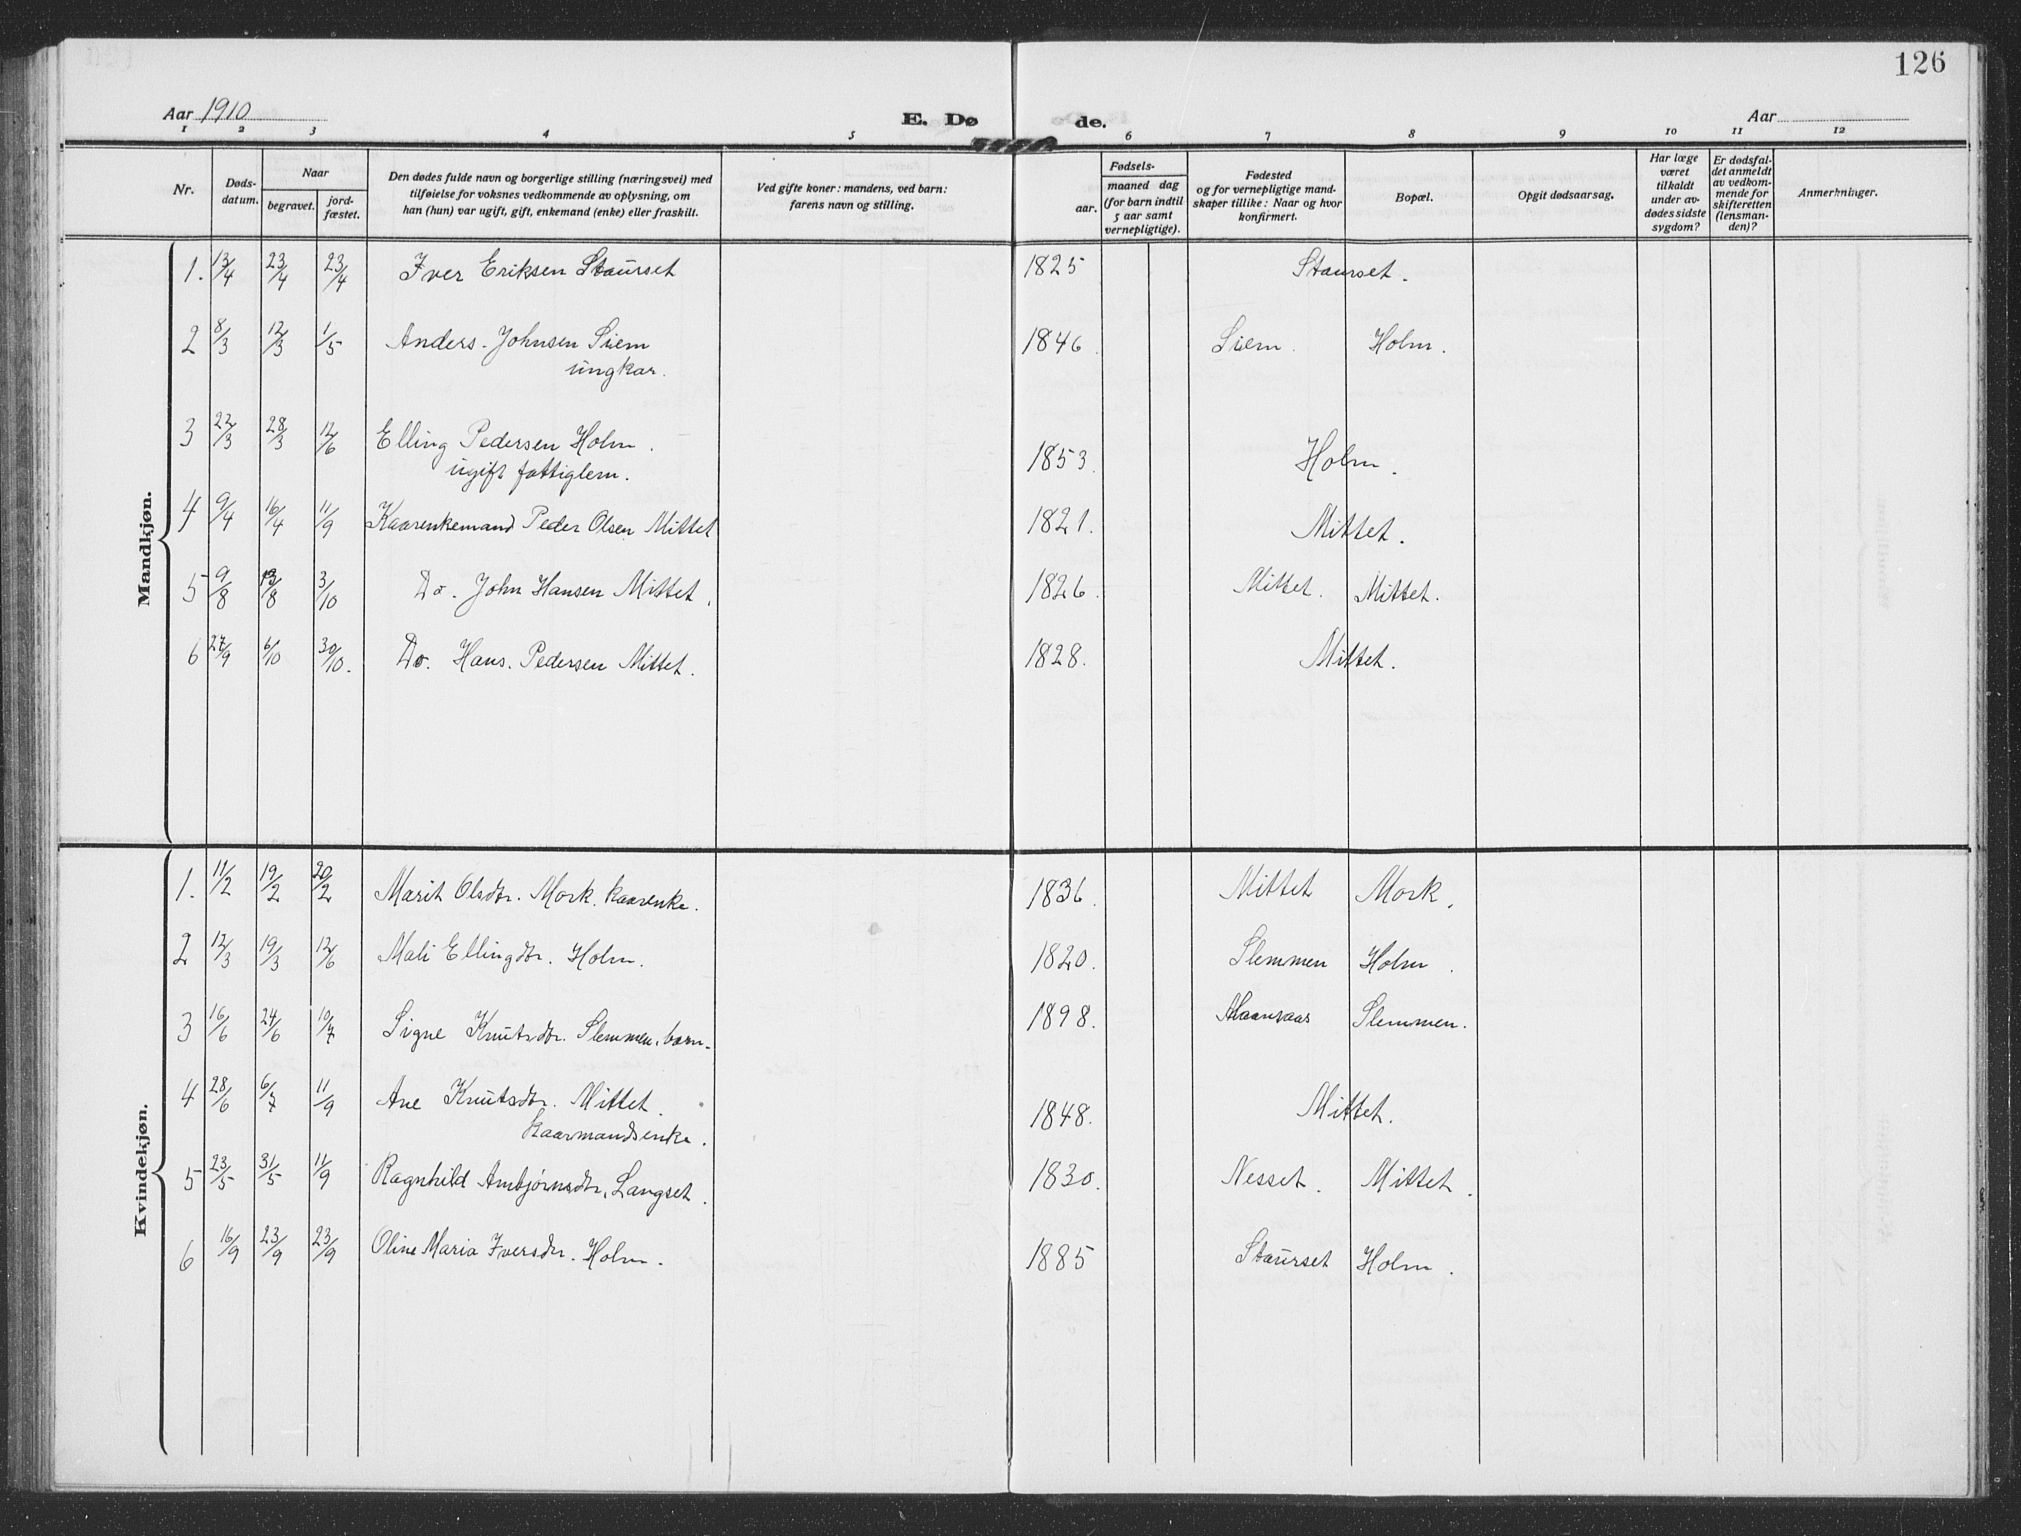 126
Aar 1910 E. Dø de. Aar
1 2 3 4 5 6 7 8 9 10 11 12
Nr. Dødsdatum. Naar begravet. jordfæstet. Den dødes fulde navn og borgerlige stilling (næringsvei) med tilføielse for voksnes vedkommende av oplysning, om han (hun) var ugift, gift, enkemand (enke) eller fraskilt. Ved gifte koner: mandens, ved barn: farens navn og stilling. Fødsels- aar. maaned dag (for barn indtil 5 aar samt vernepligtige). Fødested og for vernepligtige mandskaper tillike: Naar og hvor konfirmert. Bopæl. Opgit dødsaarsag. Har læge været tilkaldt under avdødes sidste sygdom? Er dødsfaldet anmeldt av vedkommende for skifteretten (lensmanden)? Anmerkninger.
Mandkjøn.
1. 13/4 23/4 23/4 Iver Eriksen Staurset 1825 Staurset.
2 8/3 12/3 1/5 Anders Johnsen Siem 1846. Siem. Holm.
ungkar.
3 22/3 28/3 12/6 Elling Pedersen Holm. 1853. Holm.
ugift fattiglem.
4 9/4 16/4 11/9 Kaarenkemand Peder Olsen Mittet 1821. Mittet.
5 9/8 /8 3/10 Do. John Hansen Mittet. 1826. Mittet. Mittet.
6 27/9 6/10 30/10. Do. Hans. Pedersen Mittet. 1828. Mittet.
Kvindekjøn.
1. 11/2 19/2 20/2 Marit Olsdtr. Mork. kaarenke. 1836. Mittet Mork.
2 12/3 19/3 12/6 Mali Ellingdtr. Holm. 1820. Slemmen Holm.
3 16/6 24/6 10/7 Signe Knutsdtr. Slemmen, barn. 1898. Slemmen.
4 28/6 6/7 11/9 Ane Knutsdtr. Mittet. 1848. Mittet.
kaarmandsenke.
5 23/5 31/5 11/9 Ragnhild Ambjørnsdtr. Langset. 1830. Nesset. Mittet.
6 16/9 23/9 23/9 Oline Maria Iversdtr. Holm. 1885 Staurset Holm.